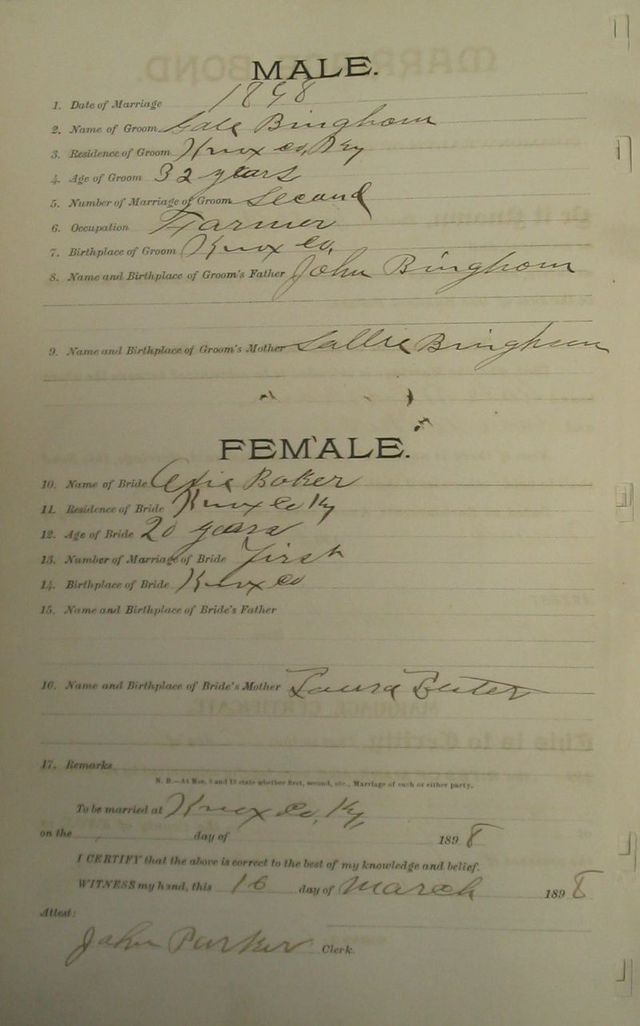 MALE.
1. Date of Marriage 1898
2. Name of Groom Gale Bingham
3. Residence of Groom Knox Co, Ky
4. Age of Groom 32 years
5. Number of Marriage of Groom Second
6. Occupation Farmer
7. Birthplace of Groom Knox Co,
8. Name and Birthplace of Groom's Father John Bingham
9. Name and Birthplace of Groom's Mother Sallie Bingham
FEMALE.
10. Name of Bride Baker
11. Residence of Bride Knox Co Ky
12. Age of Bride 20 years
13. Number of Marriage of Bride First
14. Birthplace of Bride Knox Co
15. Name and Birthplace of Bride's Father
16. Name and Birthplace of Bride's Mother Laura
17. Remarks
N. B.—At Nos. 5 and 13 state whether first, second, etc., Marriage of each or either party.
To be married at Knox Co, Ky,
on the day of 1898
I CERTIFY that the above is correct to the best of my knowledge and belief.
WITNESS my hand, this 16 day of March 1898
Attest:
John Parker Clerk.